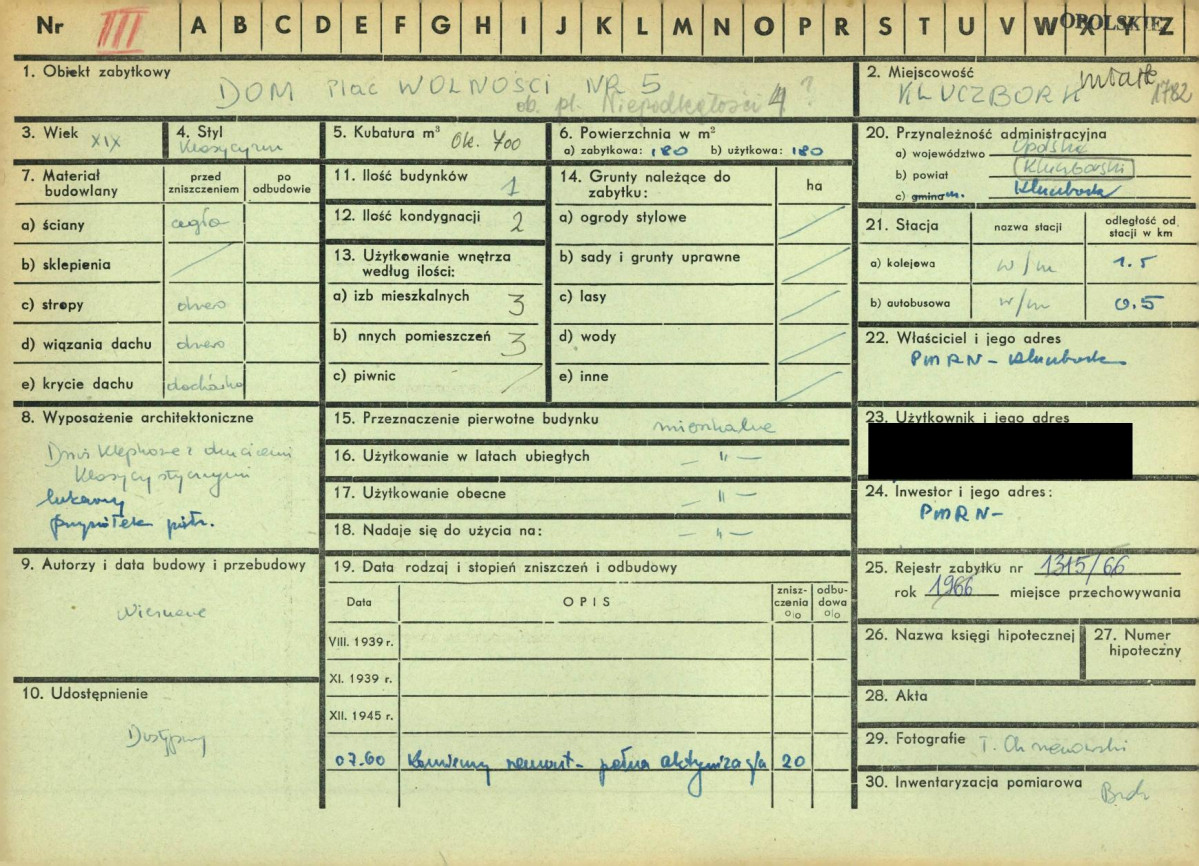 Nr III A B C D E F G H I J K L M N O P R S T U V W X Y Z
OPOLSKIE
1. Obiekt zabytkowy
DOM Plac WOLNOŚCI NR 5
ob. pl. Niepodległości 4 ?
2. Miejscowość
KLUCZBORK miasto
1782
3. Wiek
XIX
4. Styl
Klasycyzm
5. Kubatura m³
Ok. 700
6. Powierzchnia w m²
a) zabytkowa: 180 b) użytkowa: 180
20. Przynależność administracyjna
a) województwo Opolskie
b) powiat Kluczborski
c) gmina m. Kluczbork
7. Materiał budowlany
przed zniszczeniem
po odbudowie
a) ściany cegła
b) sklepienia
c) stropy drewno
d) wiązania dachu drewno
e) krycie dachu dachówka
11. Ilość budynków 1
12. Ilość kondygnacji 2
13. Użytkowanie wnętrza według ilości:
a) izb mieszkalnych 3
b) nnych pomieszczeń 3
c) piwnic
14. Grunty należące do zabytku:
ha
a) ogrody stylowe
b) sady i grunty uprawne
c) lasy
d) wody
e) inne
21. Stacja
nazwa stacji
odległość od stacji w km
a) kolejowa w/m 1.5
b) autobusowa w/m 0.5
22. Właściciel i jego adres
PMRN - Kluczbork
8. Wyposażenie architektoniczne
Drzwi klepkowe z
klasycystycznymi
łukowy
przyziem piętr.
15. Przeznaczenie pierwotne budynku mieszkalne
16. Użytkowanie w latach ubiegłych — " —
17. Użytkowanie obecne — " —
18. Nadaje się do użycia na: — " —
23. Użytkownik i jego adres
24. Inwestor i jego adres:
PMRN-
9. Autorzy i data budowy i przebudowy
Nieznane
19. Data rodzaj i stopień zniszczeń i odbudowy
Data
OPIS
zniszczenia o|o
odbudowa o|o
VIII. 1939 r.
XI. 1939 r.
XII. 1945 r.
07.60 Konieczny remont - pełna aktywizacja 20
25. Rejestr zabytku nr 1315/66
rok 1966 miejsce przechowywania
26. Nazwa księgi hipotecznej
27. Numer hipoteczny
10. Udostępnienie
Dostępny
28. Akta
29. Fotografie T. Chrzanowski
30. Inwentaryzacja pomiarowa
Brak